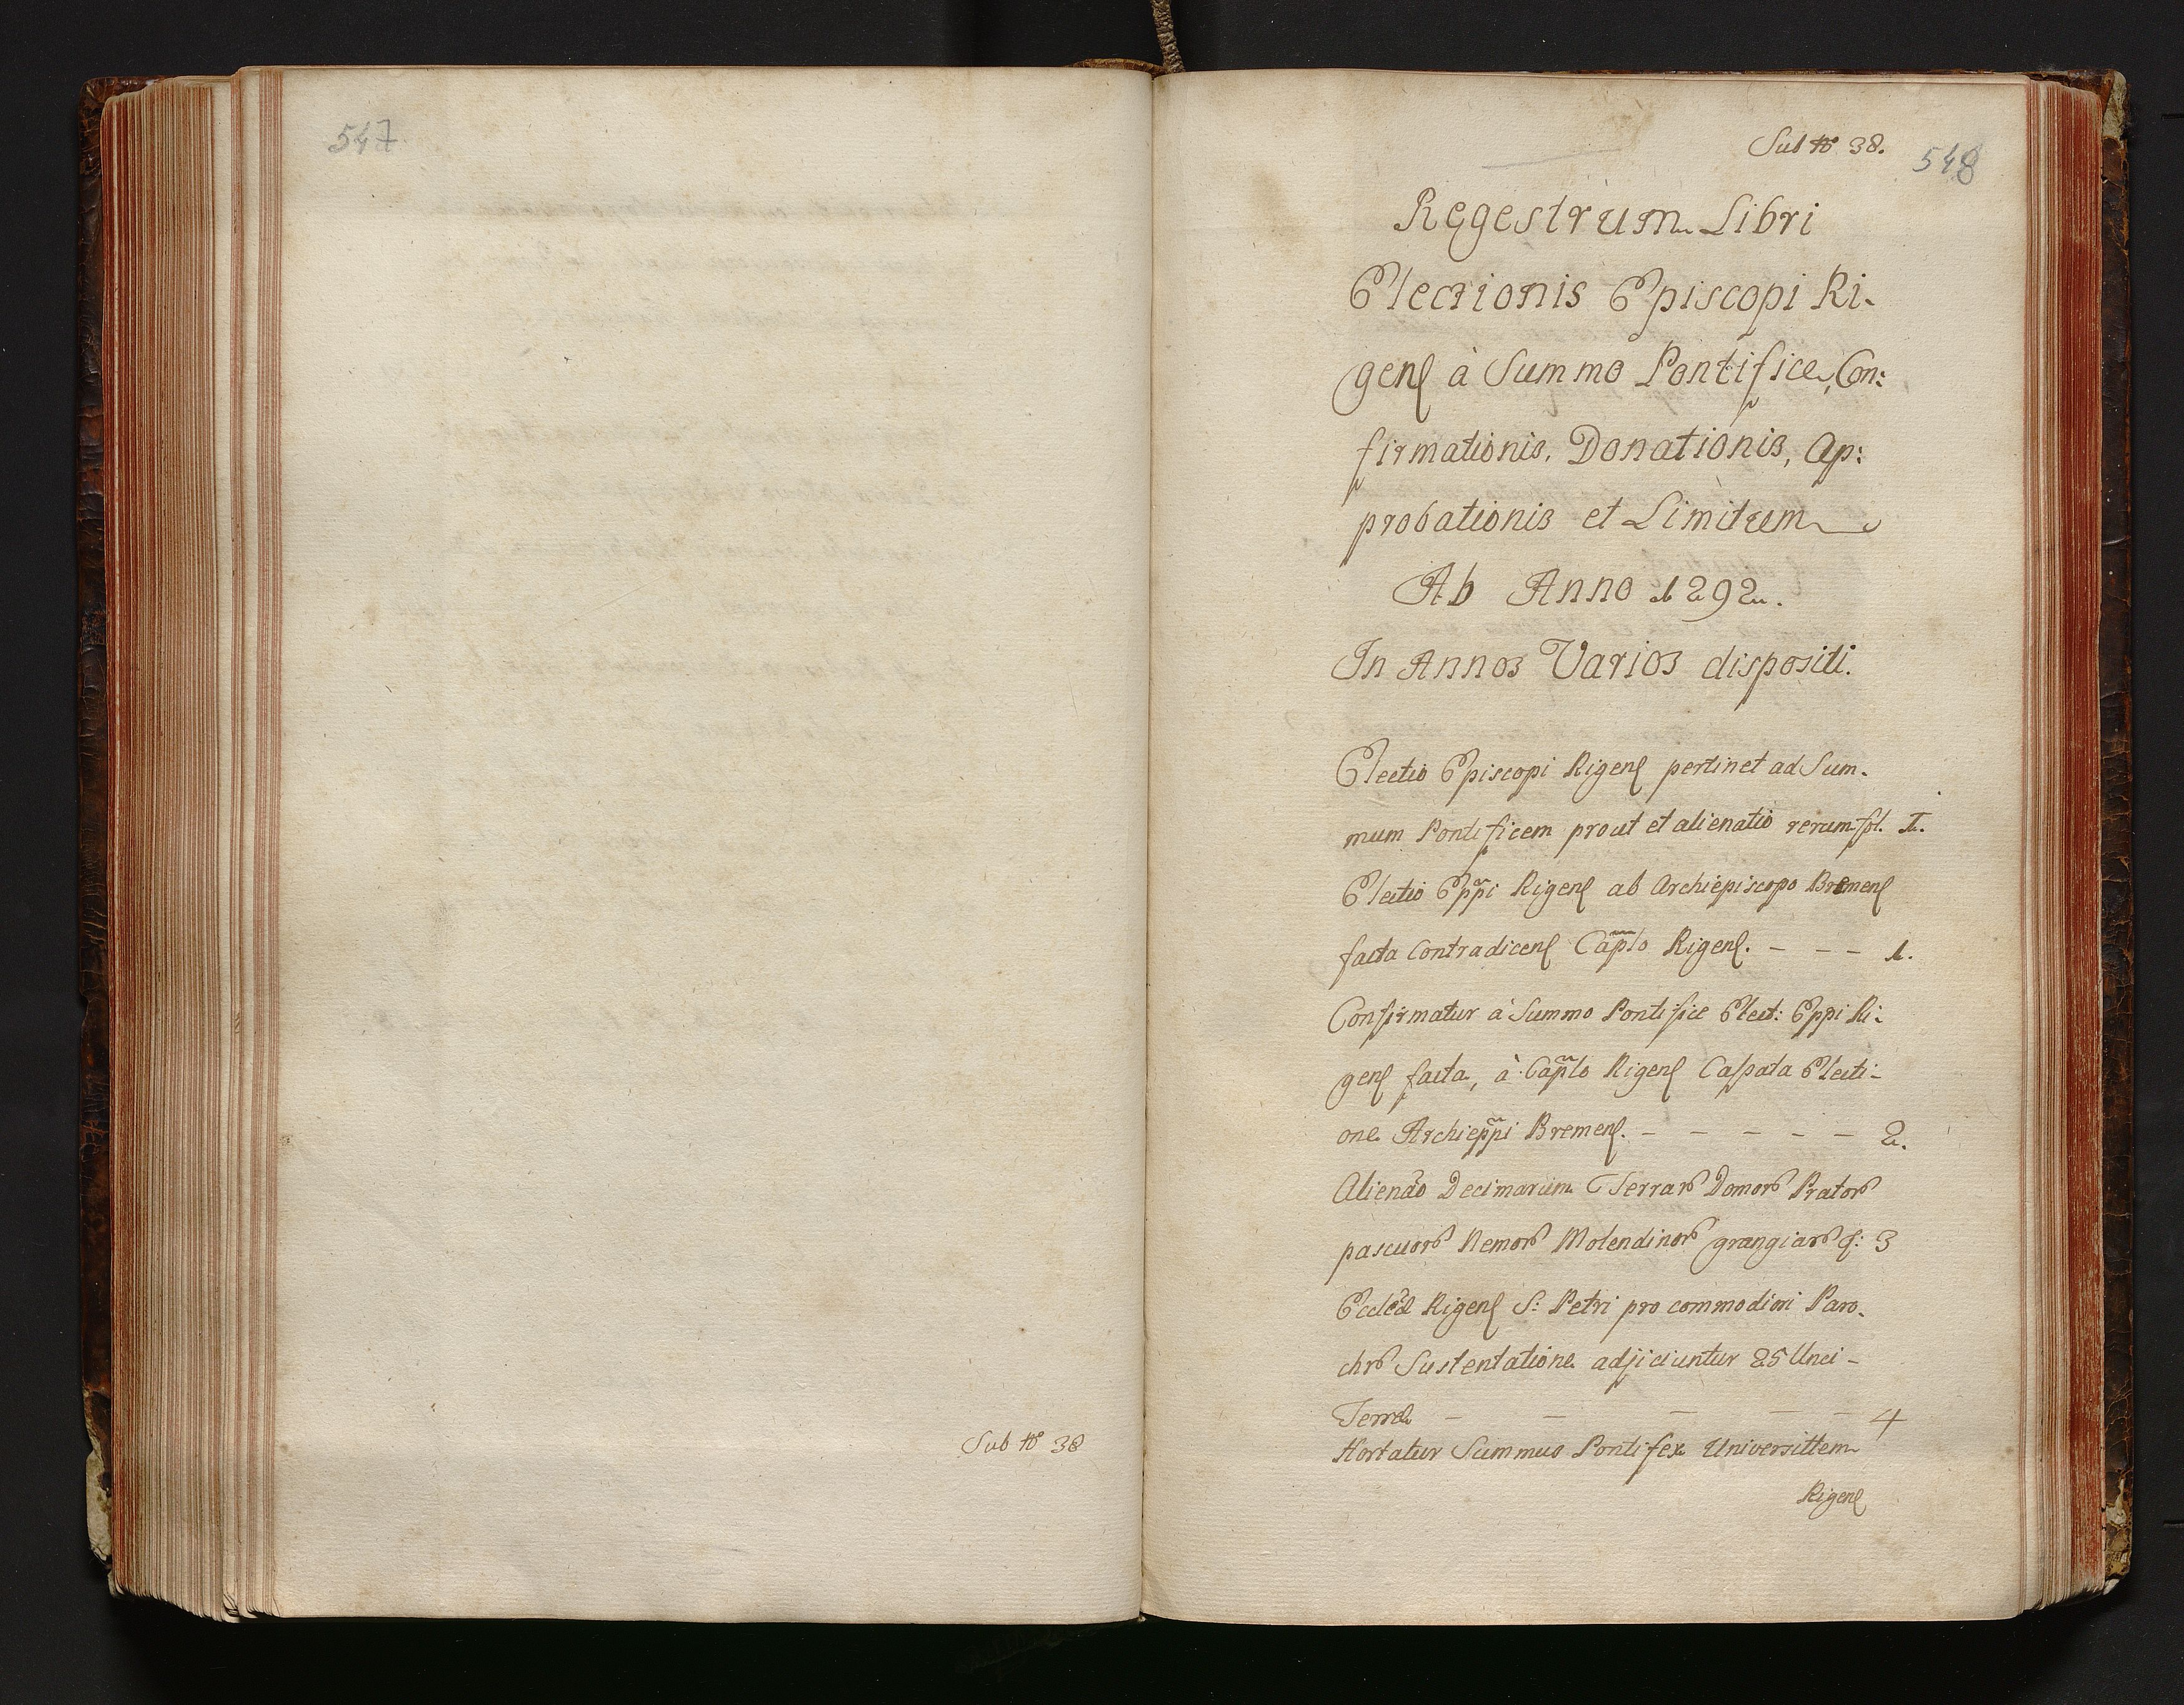 547
Sub No 38
Sub No 38.
548
Regestrum Libri
Electionis Episcopi Ri-
gens à Summo Pontifice, Con:
firmationis, Donationis, Ap:
probationis et Limitum
Ab Anno 1292.
In Annos Varios dispositi.
Electio Episcopi Rigens pertinet ad Sum-
mum Pontificem prout et alienatio rerum fol. 1.
Electio Eppi Rigens ab Archiepiscopo Bremens
facta Contradicens Caplo Rigens. - - - 1.
Confirmatur à Summo Pontifice Elect: Eppi Ri-
gens facta, à Caplo Rigens Cassata Electi-
one Archieppi Bremens. - - - - - 2.
Alienāo Decimarum Terrar Domor Prator
pascuor Nemor Molendinor grangiar f: 3
Eccleæ Rigens S: Petri pro commodiori Paro-
chr Sustentatione adjiciuntur 25 Unci-
Terræ - - - - 4
Hortatur Summus Pontifex Universittem
Rigens